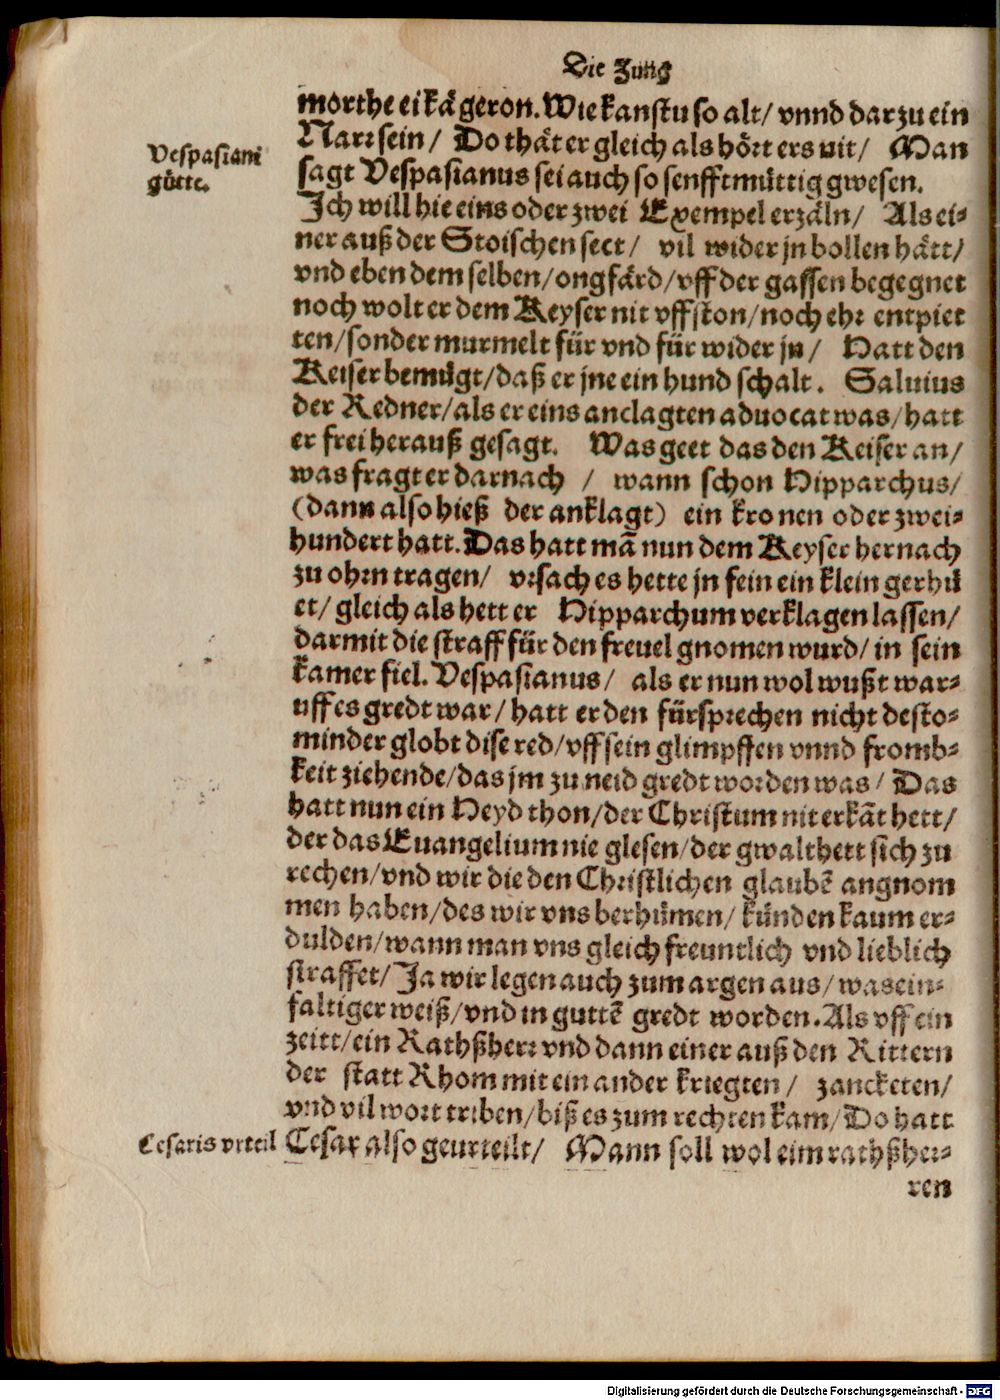 Die Zung
morthe ei kă geron. Wie kanstu so alt/ vnnd darzu ein
Narr sein/ Do thät er gleich als hört ers nit/ Man
Vespasiani
gütte.
sagt Vespasianus sei auch so senfftmüttig gwesen.
Ich will hie eins oder zwei Exempel erzäln/ Als ei-
ner auß der Stoischen sect/ vil wider jn bollen hätt/
vnd eben dem selben/ ongfärd/ vff der gassen begegnet
noch wolt er dem Keyser nit vffston/ noch ehr entpiet
ten/ sonder murmelt für vnd für wider jn/ Hatt den
Keiser bemügt/ daß er jne ein hund schalt. Saluius
der Redner/ als er eins anclagten aduocat was/ hatt
er frei herauß gesagt. Was geet das den Keiser an/
was fragt er darnach / wann schon Hipparchus/
(dann also hieß der anklagt) ein kronen oder zwei-
hundert hatt. Das hatt mã nun dem Keyser hernach
zu ohrn tragen/ vrsach es hette jn fein ein klein gerhü
et/ gleich als hett er Hipparchum verklagen lassen/
darmit die straff für den freuel gnomen wurd/ in sein
kamer fiel. Vespasianus/ als er nun wol wußt war-
uff es gredt war/ hatt er den fürsprechen nicht desto-
minder globt dise red/ vff sein glimpffen vnnd fromb-
keit ziehende/ das jm zu neid gredt worden was/ Das
hatt nun ein Heyd thon/ der Christum nit erkãt hett/
der das Euangelium nie glesen/ der gwalt hett sich zu
rechen/ vnd wir die den Christlichen glaubẽ angnom
men haben/ des wir vns berhümen/ künden kaum er-
dulden/ wann man vns gleich freuntlich vnd lieblich
straffet/ Ja wir legen auch zum argen aus/ was ein-
faltiger weiß/ vnd in guttẽ gredt worden. Als vff ein
zeitt/ ein Rathßherr vnd dann einer auß den Rittern
der statt Rhom mit ein ander kriegten/ zancketen/
vnd vil wort triben/ biß es zum rechten kam/ Do hatt
Cesaris vrteil
Cesar also geurteilt/ Mann soll wol eim rathßher-
ren
Digitalisierung gefördert durch die Deutsche Forschungsgemeinschaft - DFG